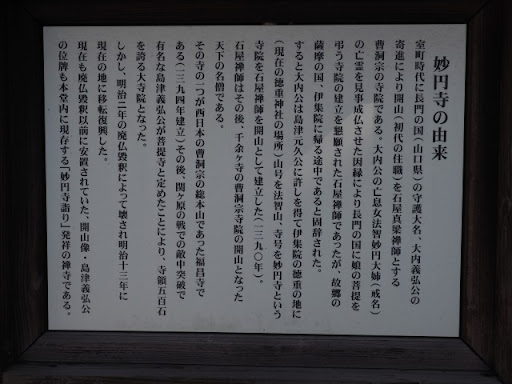 妙円寺の由来
室町時代に長門の国（山口県）の守護大名、大内義弘公の
寄進により開山（初代の住職）を石屋真梁禅師とする
曹洞宗の寺院である。大内公の亡息女法智妙円大姉（戒名）
の亡霊を見事成仏させた因縁により長門の国に娘の菩提を
弔う寺院の建立を懇願された石屋禅師であったが、故郷の
薩摩の国、伊集院に帰る途中であると固辞された。
すると大内公は島津元久公に許しを得て伊集院の徳重の地に
（現在の徳重神社の場所）山号を法智山、寺号を妙円寺という
寺院を石屋禅師を開山として建立した（一三九〇年）。
石屋禅師はその後、千余ヶ寺の曹洞宗寺院の開山となった
天下の名僧である。
その寺の一つが西日本の曹洞宗の総本山であった福昌寺で
ある（一三九四年建立）その後、関ヶ原の戦での敵中突破で
有名な島津義弘公が菩提寺と定めたことにより、寺領五百石
を誇る大寺院となった。
しかし、明治二年の廃仏毀釈によって壊され明治十三年に
現在の地に移転復興した。
現在も廃仏毀釈以前に安置されていた、開山像・島津義弘公
の位牌も本堂内に現存する「妙円寺詣り」発祥の禅寺である。